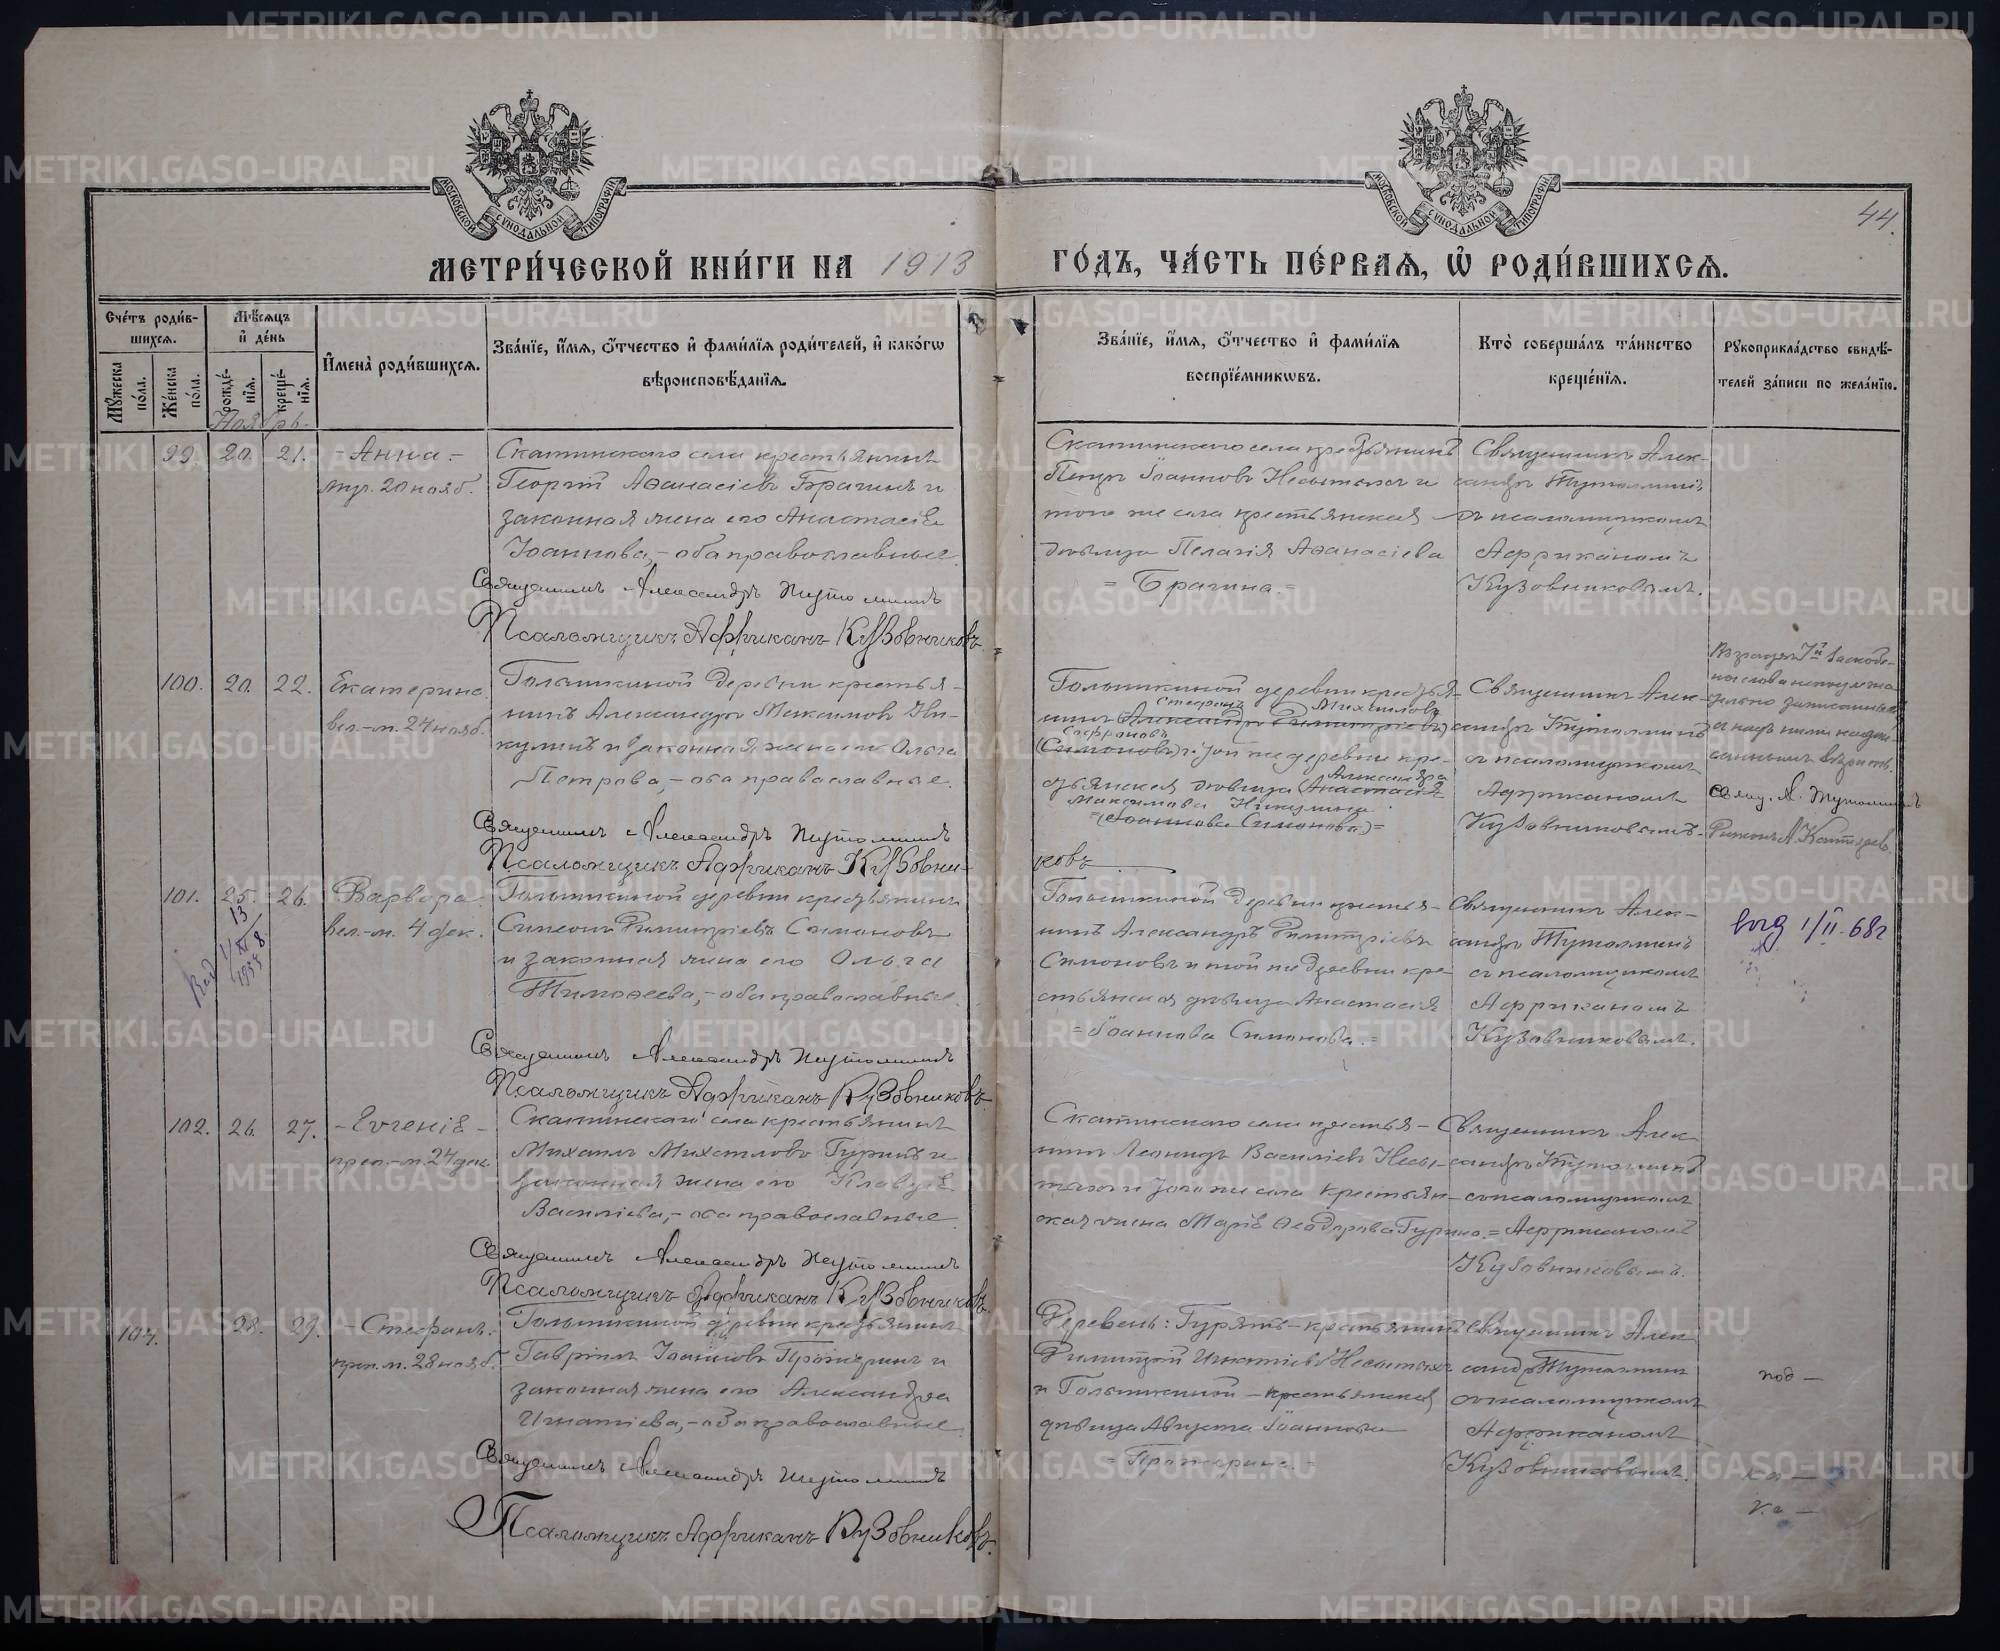 МОСКОВСКОЙ СѴНОДАЛЬНОЙ ТИПОГРАФІИ
МОСКОВСКОЙ СѴНОДАЛЬНОЙ ТИПОГРАФІИ
44.
МЕТРИ́ЧЕСКОЙ КНИ́ГИ НА 1913
ГО́ДЪ, ЧА́СТЬ ПЕ́РВАЯ, Ѡ҆ РОДИ́ВШИХСЯ.
Сче́тъ роди́в-
шихся.
Мꙋ́жеска по́ла.
Же́нска по́ла.
Мѣ́сяцъ
и҆ де́нь
рожде́-
нія.
креще́-
нія.
И҆мена̀ роди́вшихся.
Зва́ніе, и҆́мя, ѻ҆́тчество и҆ фами́лія роди́телей, и҆ како́гѡ
вѣроисповѣ́данія.
Зва́ніе, и҆́мя, ѻ҆́тчество и҆ фами́лія
воспріе́мникѡвъ.
Кто̀ соверша́лъ та́инство
креще́нія.
Рꙋкоприкла́дство свидѣ́-
телей за́писи по жела́нію.
Ноябрь.
99. 20. 21. - Анна. -
муч. 20 нояб.
Скатинскаго села крестьянинъ
Георгій Аѳанасіевъ Брагинъ и
законная жена его Анастасія
Іоаннова, - оба православные.
Священникъ Александръ Тутолминъ
Псаломщикъ Африканъ Кузовниковъ.
Скатинскаго села крестьянинъ
Петръ Іоанновъ Несытыхъ и
того же села крестьянская
дѣвица Пелагія Аѳанасіева
= Брагина. =
Священникъ Алек-
сандръ Тутолминъ
съ псаломщикомъ
Африканомъ
Кузовниковымъ.
100. 20. 22. Екатерина.
вел.-м. 24 нояб.
Голышкиной деревни крестья-
нинъ Александръ Максимовъ Ни-
кулинъ и законная жена его Ольга
Петрова, - оба православные.
Священникъ Александръ Тутолминъ
Псаломщикъ Африканъ Кузовни-
ковъ
Голышкиной деревни крестья-
Стефанъ Михаиловъ
нинъ (Александръ Димитріевъ)
Сафроновъ
(Симоновъ) и той же деревни кре-
Александра
стьянская дѣвица (Анастасія
Максимова Никулина
= (Іоаннова Симонова) =
Священникъ Алек-
сандръ Тутолминъ
съ псаломщикомъ
Африканомъ
Кузовниковымъ.
Свящ. А. Тутолминъ
101. 25. 26. Варвара.
вел.-м. 4 дек.
Голышкиной деревни крестьянинъ
Симеонъ Димитріевъ Симоновъ
и законная жена его Ольга
Тимоѳеева, - оба православные.
Священникъ Александръ Тутолминъ
Псаломщикъ Африканъ Кузовниковъ.
Голышкиной деревни крестья-
нинъ Александръ Димитріевъ
Симоновъ и той же деревни кре-
стьянская дѣвица Анастасія
= Іоаннова Симонова. =
Священникъ Алек-
сандръ Тутолминъ
съ псаломщикомъ
Африканомъ
Кузовниковымъ.
1/II-68г
102. 26. 27. - Евгенія -
преп.-м. 24 дек.
Скатинскаго села крестьянинъ
Михаилъ Михаиловъ Гуринъ и
законная жена его Клавдія
Василіева, - оба православные.
Священникъ Александръ Тутолминъ
Псаломщикъ Африканъ Кузовниковъ.
Скатинскаго села крестья-
нинъ Леонидъ Василіевъ Несы-
тыхъ и того же села крестьян-
ская жена Марія Ѳеодорова Гурина. =
Священникъ Алек-
сандръ Тутолминъ
съ псаломщикомъ
Африканомъ
Кузовниковымъ.
107. 28. 29. - Стефанъ.
преп. м. 28 нояб.
Голышкиной деревни крестьянинъ
Гавріилъ Іоанновъ и
законная жена его Александра
Игнатіева, - оба православные.
Священникъ Александръ Тутолминъ
Псаломщикъ Африканъ Кузовниковъ.
Деревень: крестьянинъ
Димитрій Игнатіевъ Несытыхъ
и Голышкиной - крестьянская
дѣвица Августа Іоаннова
Священникъ Алек-
сандръ Тутолминъ
съ псаломщикомъ
Африканомъ
Кузовниковымъ.
под -
METRIKI.GASO-URAL.RU